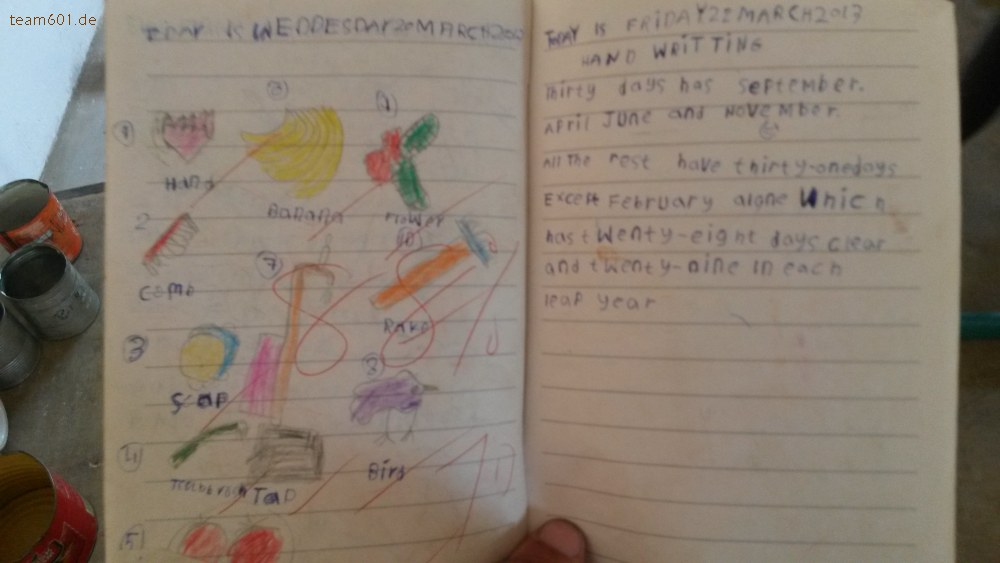 team601.de
TODAY is WEDDESDAY 22 MARCH 2017
1
Hand
Banana
Flower
2
comb
7
10
Rake
3
soap
8
4
Tap
Bird
5
TODAY IS FRIDAY 2 MARCH 2017
HAND WRITTING
Thirty days has september.
April June and November.
All The rest have thirty-onedays
Except February alone Which
has twenty-eight days clear
and twenty-nine in each
leap year